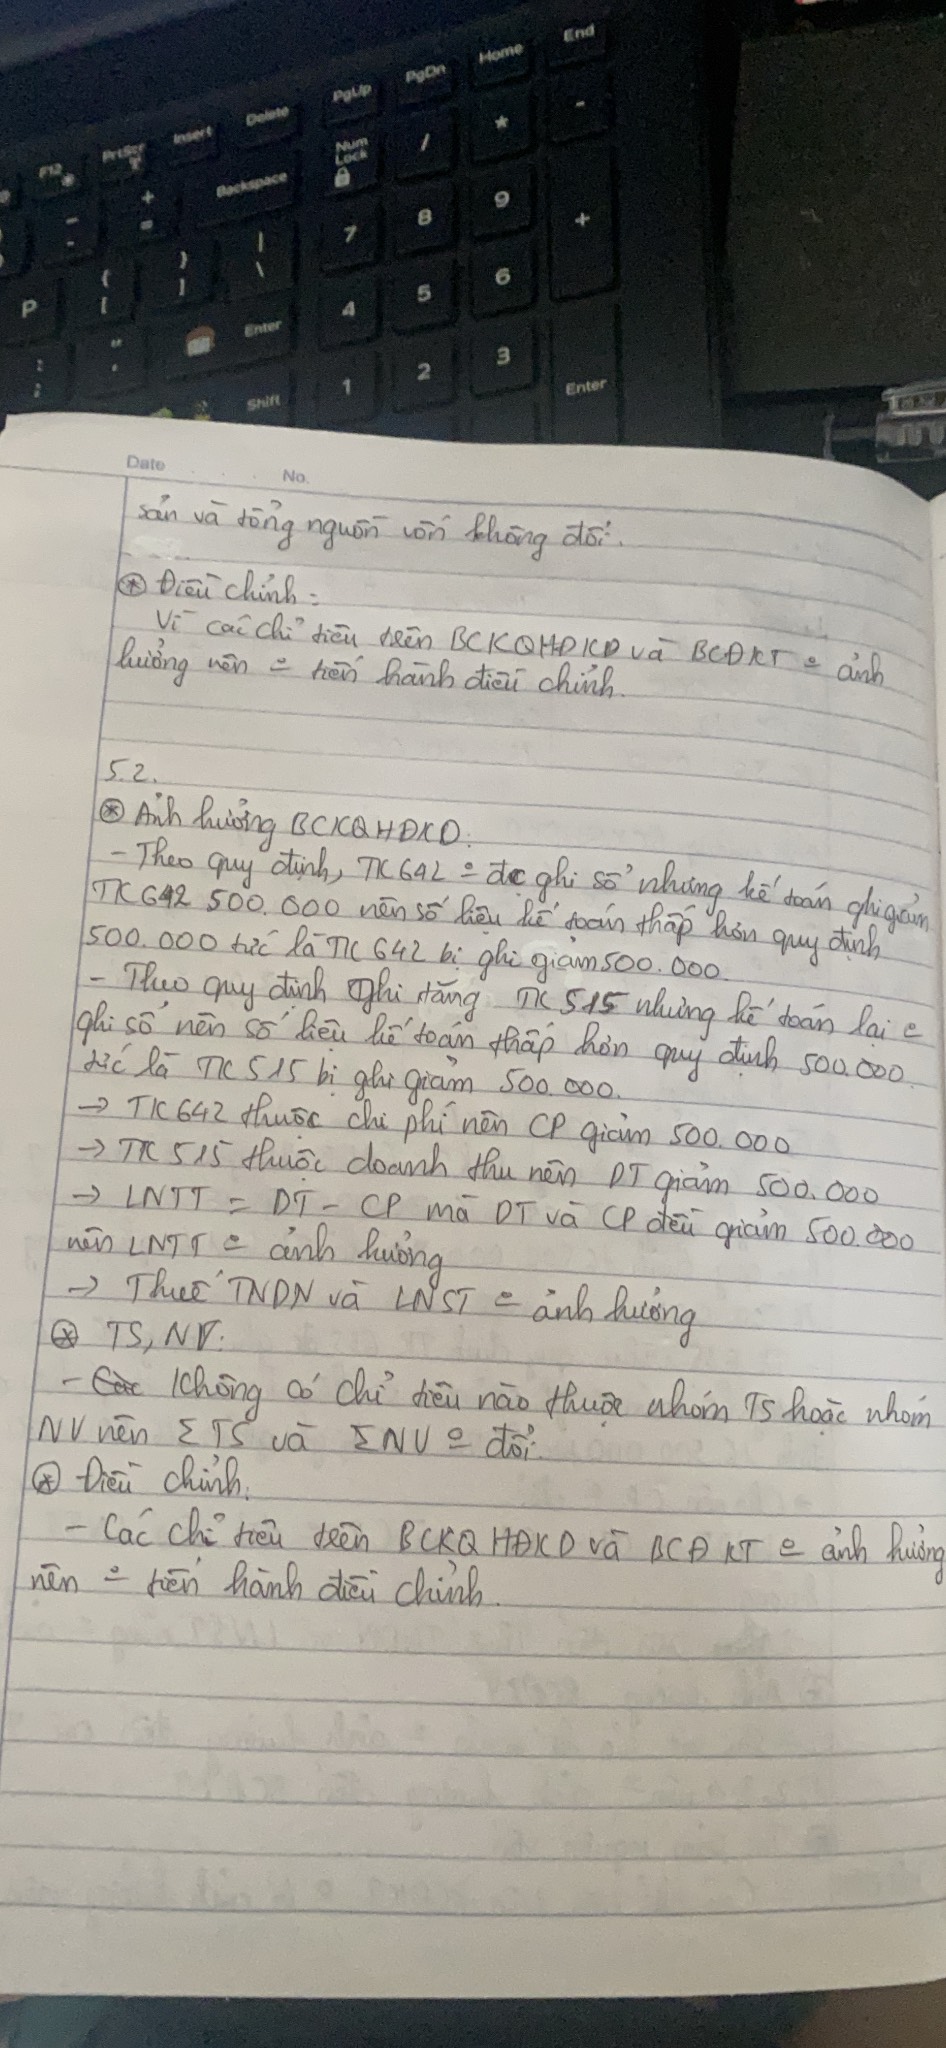 End
Home
PgDn
PgUp
Delete
Insert
PrtScr
F12
-
*
/
Num
Lock
Backspace
+
=
-
+
9
8
7
|
\
}
]
{
[
P
6
5
4
Enter
"
'
:
;
3
2
1
Shift
Enter
Date No.
sản và tổng nguồn vốn không đổi.
⊛ Điều chỉnh:
Vì các chỉ tiêu trên BCKQHĐKD và BCĐKT ≗ ảnh
hưởng nên ≗ tiến hành điều chỉnh.
5.2.
⊛ Ảnh hưởng BCKQHĐKD:
- Theo quy định, TK 642 ≗ đc ghi sổ nhưng kế toán ghi giảm
TK 642 500.000 nên số liệu kế toán thấp hơn quy định
500.000 tức là TK 642 bị ghi giảm 500.000
- Theo quy định ghi tăng TK 515 nhưng kế toán lại ≗
ghi sổ nên số liệu kế toán thấp hơn quy định 500.000.
tức là TK 515 bị ghi giảm 500.000.
→ TK 642 thuộc chi phí nên CP giảm 500.000
→ TK 515 thuộc doanh thu nên DT giảm 500.000
→ LNTT = DT - CP mà DT và CP đều giảm 500.000
nên LNTT ≗ ảnh hưởng
→ Thuế TNDN và LNST ≗ ảnh hưởng
⊛ TS, NV:
- Không có chỉ tiêu nào thuộc nhóm TS hoặc nhóm
NV nên Σ TS và Σ NV ≗ đổi.
⊛ Điều chỉnh.
- Các chỉ tiêu trên BCKQ HĐKD và BCĐ KT ≗ ảnh hưởng
nên ≗ tiến hành điều chỉnh.